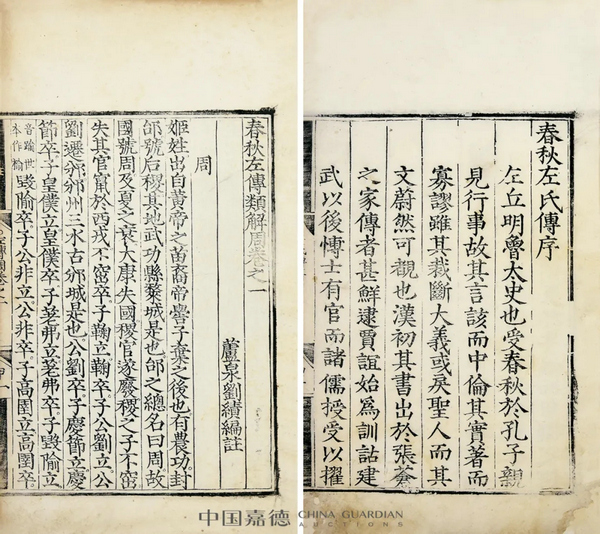 春秋左氏傳序
左丘明魯太史也受春秋於孔子親
見行事故其言該而中倫其實著而
寡謬雖其裁斷大義或戾聖人而其
文蔚然可觀也漢初其書出於張蒼
之家傳者甚鮮逮賈誼始為訓詁建
武以後博士有官而諸儒授受以擢
春秋左傳類解周卷之一
蘆泉劉績編註
周
姬姓出自黃帝之苗裔帝嚳子棄之後也有農功封
邰號后稷其地武功縣斄城是也邰之總名曰周故
國號周及夏之衰大康失國稷官遂廢稷之子不窋
失其官竄於西戎不窋卒子鞠立鞠卒子公劉立公
劉遷邠邠州三水古邠城是也公劉卒子慶節立慶
節卒子皇僕立皇僕卒子差弗立差弗卒子毀隃立
音踰世
本作榆
毀隃卒子公非立公非卒子高圉立高圉卒
中国嘉德 CHINA GUARDIAN
AUCTIONS